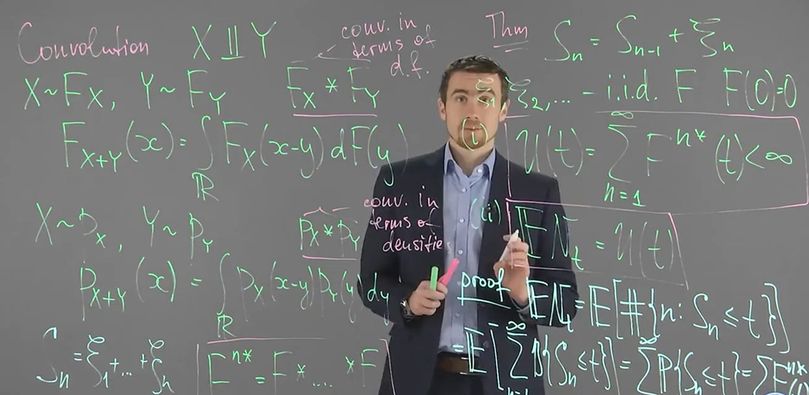 Convolution X ⫫ Y
conv. in
terms of
d.f.
X ~ F_X, Y ~ F_Y F_X * F_Y
F_{X+Y}(x) = ∫_ℝ F_X(x-y) dF(y)
X ~ p_X, Y ~ p_Y p_X * p_Y
conv. in
terms of
densities
p_{X+Y}(x) = ∫_ℝ p_X(x-y) p_Y(y) dy
S_n = ξ_1 + ... + ξ_n
F^{n*} = F * ... * F
Thm S_n = S_{n-1} + ξ_n
ξ_1, ξ_2, ... - i.i.d. F F(0)=0
(i) U(t) = ∑_{n=1}^∞ F^{n*}(t) < ∞
(ii) 𝔼N_t = U(t)
proof 𝔼N_t = 𝔼[#{n: S_n ≤ t}]
= 𝔼[∑_{n=1}^∞ 1{S_n ≤ t}] = ∑^∞ ℙ{S_n ≤ t} = ∑ F^{n*}(t)